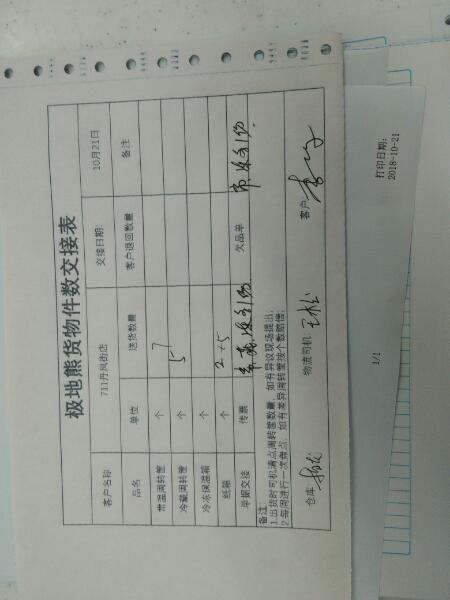 极地熊货物件数交接表
客户名称 711丹凤街店 交接日期: 10月21日
品名 单位 送货数量 客户退回数量 备注
常温周转筐 个 7
冷藏周转筐 个 5
冷冻保温箱 个
纸箱 个 2+5
单据交接 传票 欠品单
备注:
1.出货时司机清点周转筐数量，如有异议现场提出;
2.每周进行一次盘点，如有差异周转筐按个数赔偿;
仓库 物流司机 王松 客户
1/1
打印日期:
2018-10-21